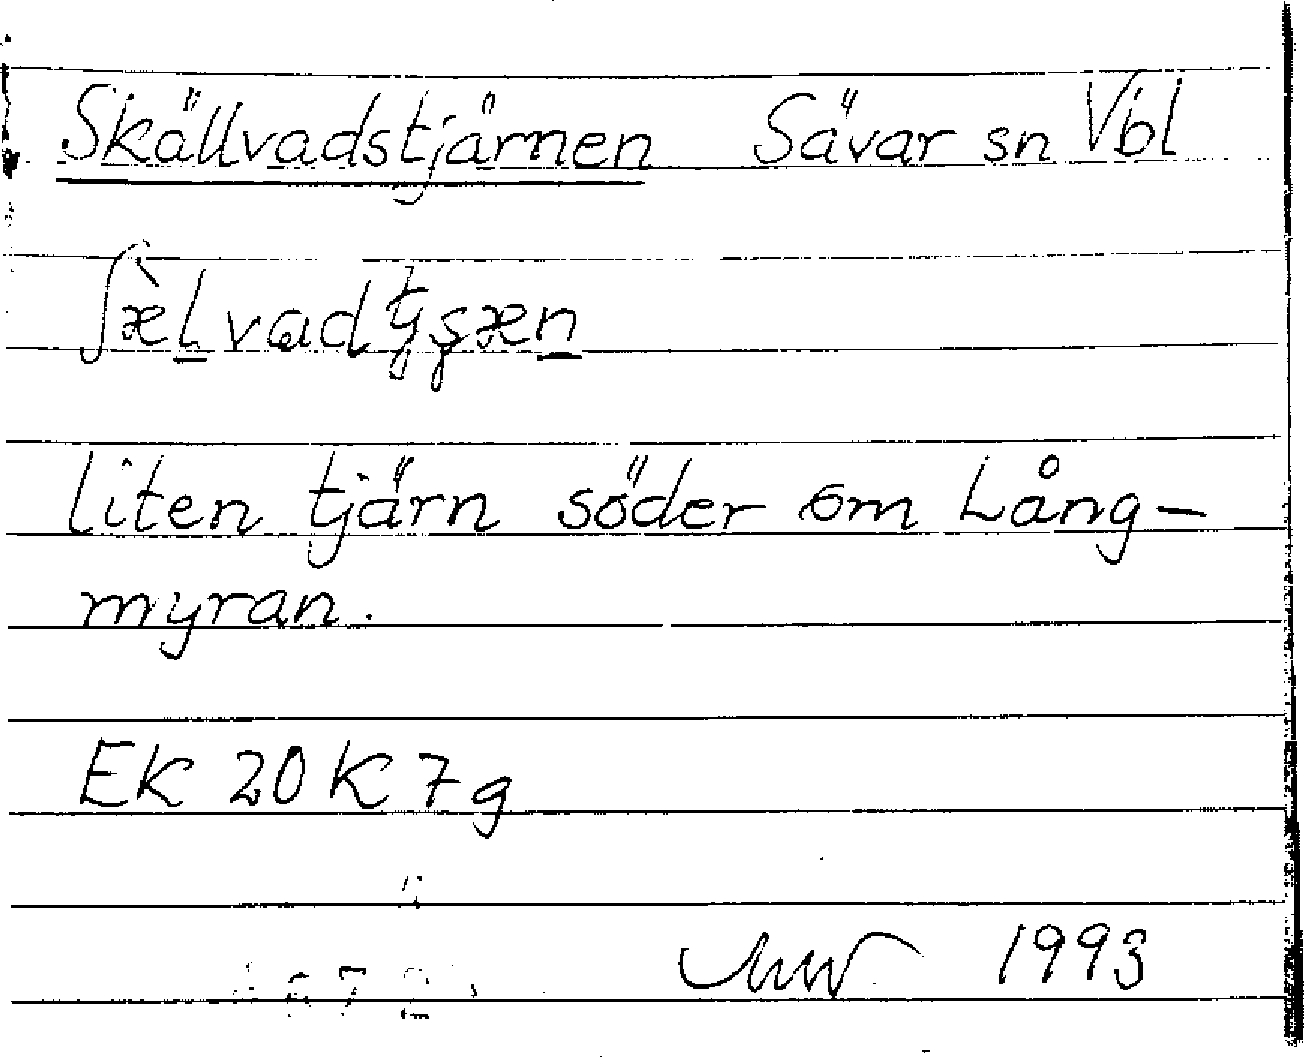 Skällvadstjärnen Sävar sn Vbl
liten tjärn söder om Lång-
myran.
EK 20 K 7 g
1993